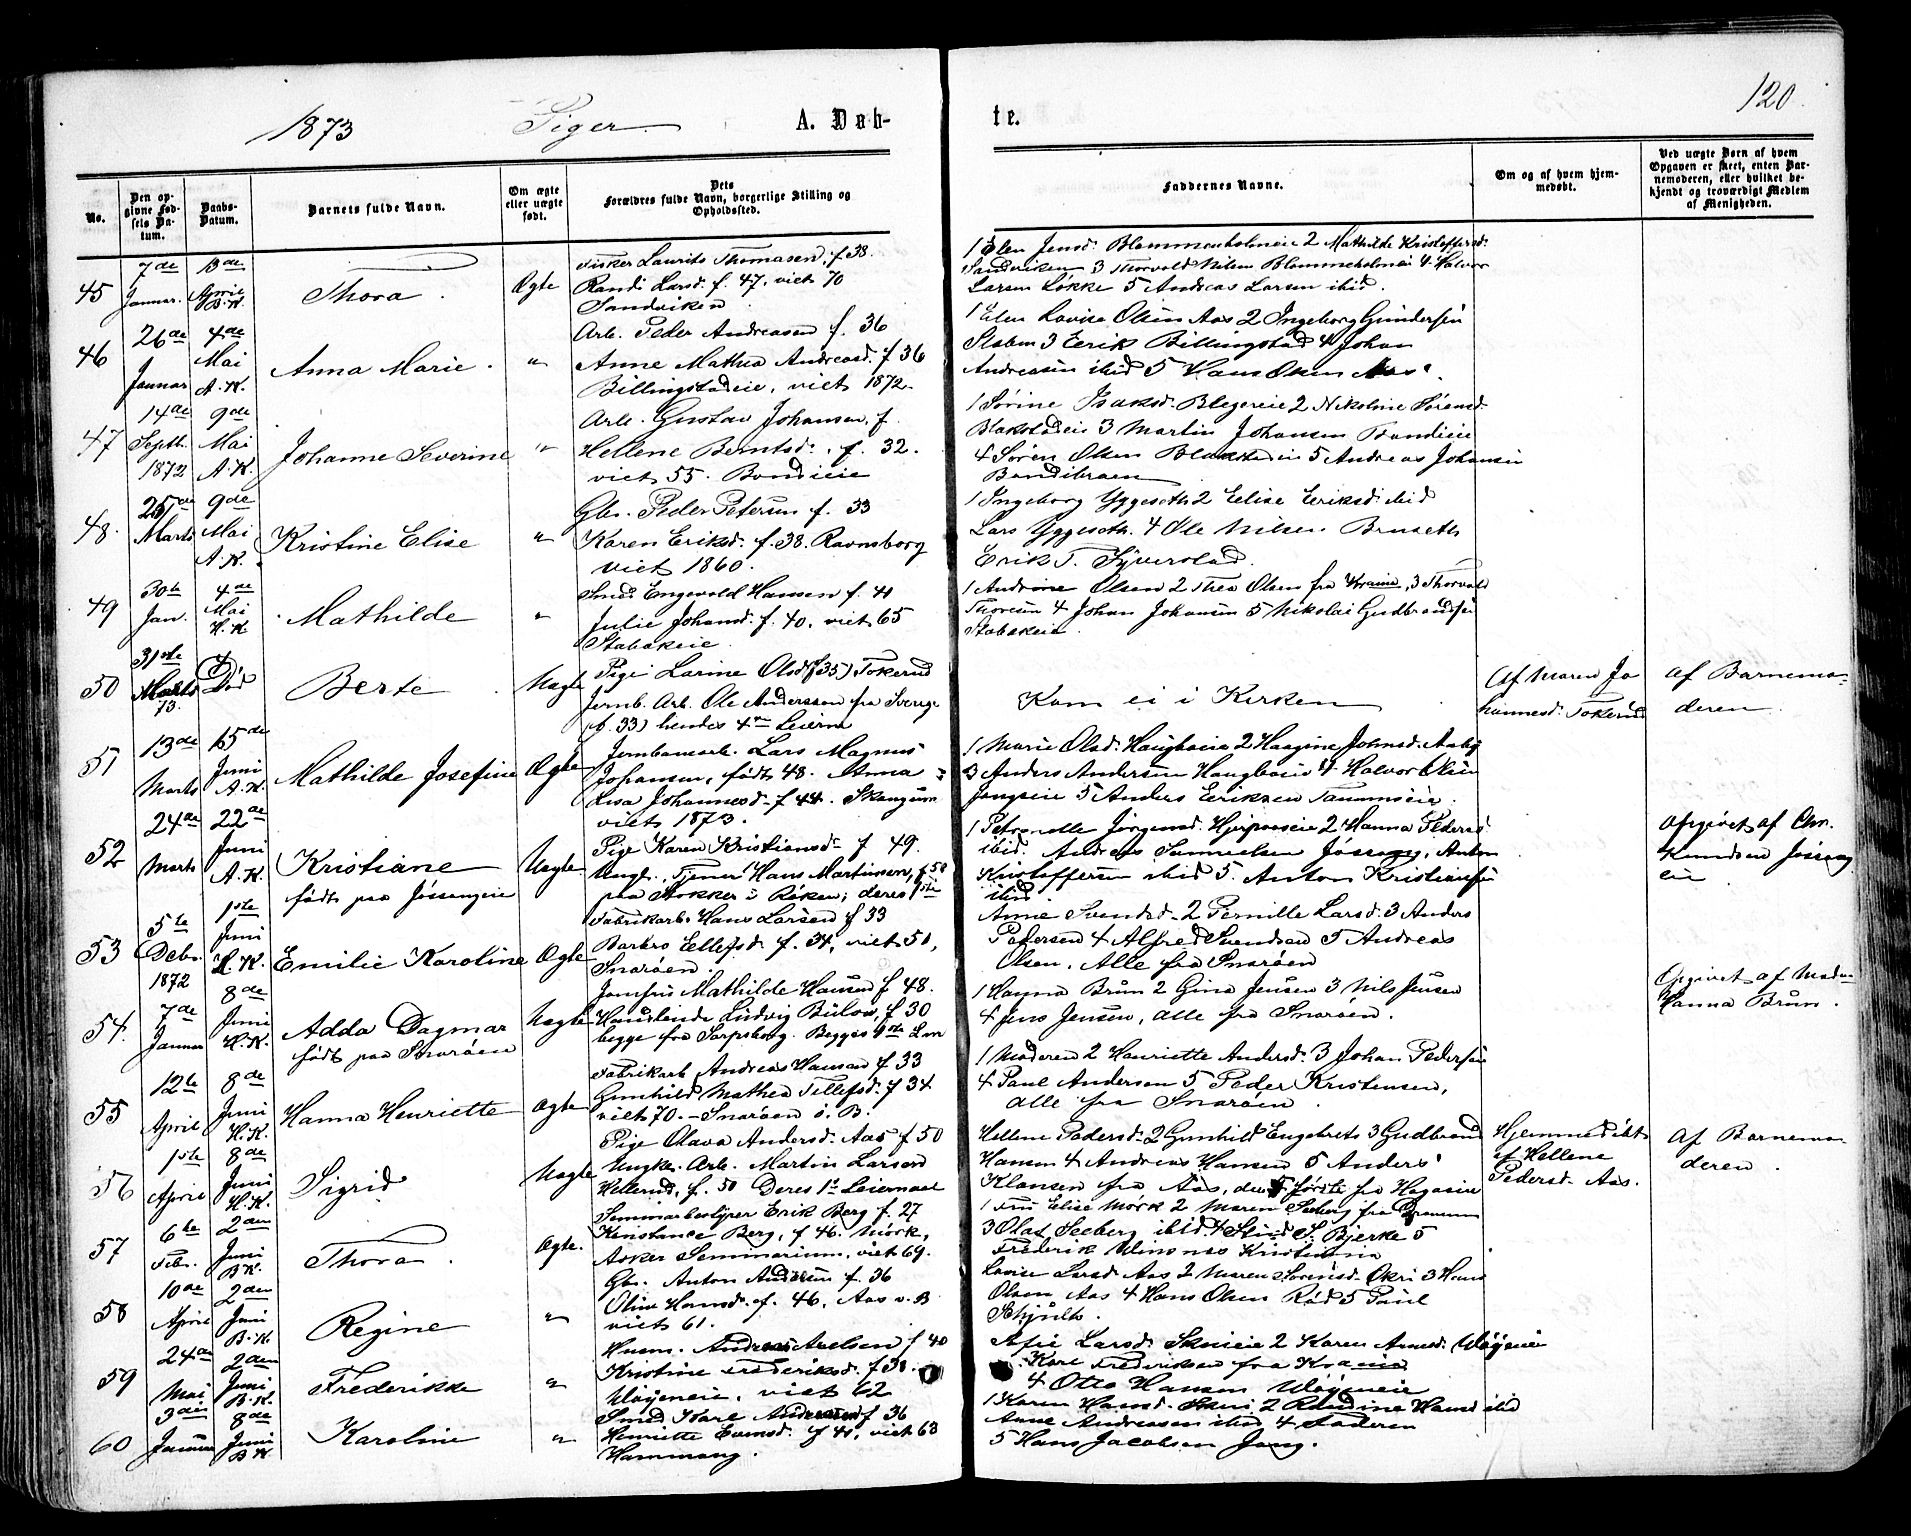 1873 Piger. A. Døb-
te.
120.
No.
Den op-
givne Fød-
sels Da-
tum.
Daabs-
Datum.
Barnets fulde Navn.
Om ægte
eller uægte
født.
Dets
Forældres fulde Navn, borgerlige Stilling og
Opholdssted.
Faddernes Navne.
Om og af hvem hjem-
medøbt.
Ved uægte Børn af hvem
Opgaven er skeet, enten Bar-
nemoderen, eller hvilket be-
kjendt og troværdigt Medlem
af Menigheden.
45
7de
Januar.
13de
April
B.K.
Thora.
Ægte
Fisker Laurits Thomasen, f. 38.
Randi Larsd. f. 47, viet 70
Sandviken
1 Elen Jensd. Blommenholmeie 2 Mathilde Kristoffersd.
Sandviken 3 Thorvald Nilsen Blommeholmeie 4 Halvor
Larsen Løkke 5 Andreas Larsen ibid.
46
26de
Januar
4de
Mai
A.K.
Anna Marie.
"
Arb. Peder Andreasen f. 36
Anne Mathea Andreasd. f 36
Billingstadeie, viet 1872.
1 Elen Lovise Olsen Aas 2 Ingeborg Gundersen
Staben 3 Erik Billingstad 4 Johan
Andreasen ibid 5 Hans Olsen Aas.
47
14de
Septb.
1872
9de
Mai
A.K.
Johanne Severine
"
Arb. Gustav Johansen, f.
Hellene Berntsd., f. 32.
viet 55. Bondieie
1 Sørine Isaksd. Blegereie 2 Nikoline Sørensd.
Blakstadeie 3 Martin Johansen Bondieie
4 Søren Olsen Blakstadeie 5 Andreas Johansen
Bondibraen
48.
25de
Marts
9de
Mai
A.K.
Kristine Elise
"
Gbr. Peder Petersen f. 33
Karen Eriksd. f. 38. Ravnsborg
viet 1860.
1 Ingeborg Yggeseth 2 Elise Eriksd. ibid
Lars Yggeseth. 4 Ole Nilsen Bruseth
Erik T. Syverstad.
49
30te
Jan.
4de
Mai
H.K
Mathilde
"
Smed Engevold Hansen f. 41
Julie Johansd. f. 40, viet 65
Stabækeie.
1 Andrine Olsen 2 Thea Olsen fra Kraine, 3 Thorvald
Thoresen 4 Johan Johansen 5 Nikolai Gudbrandsen
Stabækeie.
50
31ste
Marts
73.
Død
Berte.
Uægte
Pige Larine Olsd (f 35) Tokerud
Jernb. Arb. Ole Andersson fra Sverige
(f. 33) hendes 4de Leierm
Kom ei i Kirken
Af Maren Jo
hannesd. Tokerud
af Barnemo-
deren.
51
13de
Marts
15de
Juni
A.K.
Mathilde Josefine
Ægte
Jernbanearb. Lars Magnus
Johansen, født 48. Anna
Lisa Johannesd. f 44. Skougum
viet 1873.
1 Marie Olsd. Haugboeie 2 Haagine Johnsd. Aaby
3 Anders Andersen Haugboeie 4 Halvor Olsen
Jongseie 5 Anders Eriksen Tanumseie.
52
24de
Marts
22de
Juni
A.K.
Kristiane
født paa Jøssongeie
Uægte
Pige Karen Kristiansd. f 49.
Ungk. Tjener Hans Martinsen, f 50
paa Stokker i Røken; deres 1ste
1 Petronelle Jørgensd. Hjerpaaseie 2 Hanna Pedersd.
ibid. Andreas Samuelsen Jøssong, Anton
Kristoffersen ibid 5. Anton Kristiansen
ibid.
Opgivet af Chr.
Knudsen Jøssong
eie
53
5te
Debr.
1872
1ste
Juni
H.K.
Emilie Karoline
Ægte
Fabrikarb Hans Larsen f 33
Barbro Ellefsd. f. 34, viet 51,
Snarøen.
Anne Svendsd. 2 Pernille Larsd. 3 Anders
Pedersen 4 Alfred Svendsen 5 Andreas
Olsen, Alle fra Snarøen
54.
7de
Januar
8de
Juni
H.K.
Adda Dagmar
født paa Snarøen
Uægte
Jomfru Mathilde Hansen f 48.
Handlende Ludvig Bülow, f 30
begge fra Sarpsborg. Begges 1ste Lm
1 Hanna Brun 2 Gina Jensen 3 Nils Jensen
4 Jens Jensen, alle fra Snarøen.
Opgivet af Mad.
Hanna Brun.
55
12te
April
8de
Juni
H.K.
Hanna Henriette
Ægte
Fabrikarb Andreas Hansen f 33
Gunhild Mathea Tellefsd. f 34
viet 70.- Snarøen ø. B.
1 Moderen 2 Henriette Andersd. 3 Johan Pedersen
4 Paul Andersen 5 Peder Kristensen,
alle fra Snarøen.
56
1ste
April
8de
Juni
H.K.
Sigrid
Uægte
Pige Olava Andersd. Aas f 50
Ungkr. Arb. Martin Larsen
Hellerud, f. 50 Deres 1ste Leiermaal
Hellene Pedersd. 2 Gunhild Engebrets 3 Gudbrand
Hansen 4 Andreas Hansen 5 Anders
Klausen fra Aas, de første fra Hagaeie
Hjemmedøbt
af Hellene
Pedersd. Aas.
Af Barnemo-
deren.
57
6te
Febr.
2den
Juni
B.K.
Thora.
Ægte.
Seminarbestyrer Erik Berg f. 27
Konstance Berg, f 46. Mørk,
Asker Seminarium, viet 69.
1 Fru Elise Mørk 2 Maren Seeberg fra Drammen
3 Olaf Seeberg ibid. 4 Stud. S. Bjerke 5
Frederik Winsnes Kristiania
58
10de
April
2den
Juni
B.K
Regine
"
Gbr. Anton Andersen f. 36
Oliva Hansd. f. 46, Aas v. B
viet 61.
Lovise Larsd Aas 2 Maren Sørensd. Økri 3 Hans
Olsen Aas 4 Hans Olsen Rød 5 Paul
Skjults.
59
24de
Mai
2den
Juni
B.K.
Frederikke
"
Husm. Andreas Axelsen f 40
Kristine Frederiksd. f 38.
Wøyeneie, viet 62
Afie Larsd. Skuieie 2 Karen Amesd. Wøyeneie
Karl Fredriksen fra Kraine
4 Otto Hansen Wøyeneie
60
3die
Januar
8de
Juni
B.K
Karoline
"
Smed Karl Andersen f 36
Henriette Evensd. f 41, viet 63
Hammang.
1 Karen Hansd. Skui 2 Randine Hansd ibid
Anne Andreasen ibid 4 Faderen
5 Hans Jacobsen Jong.